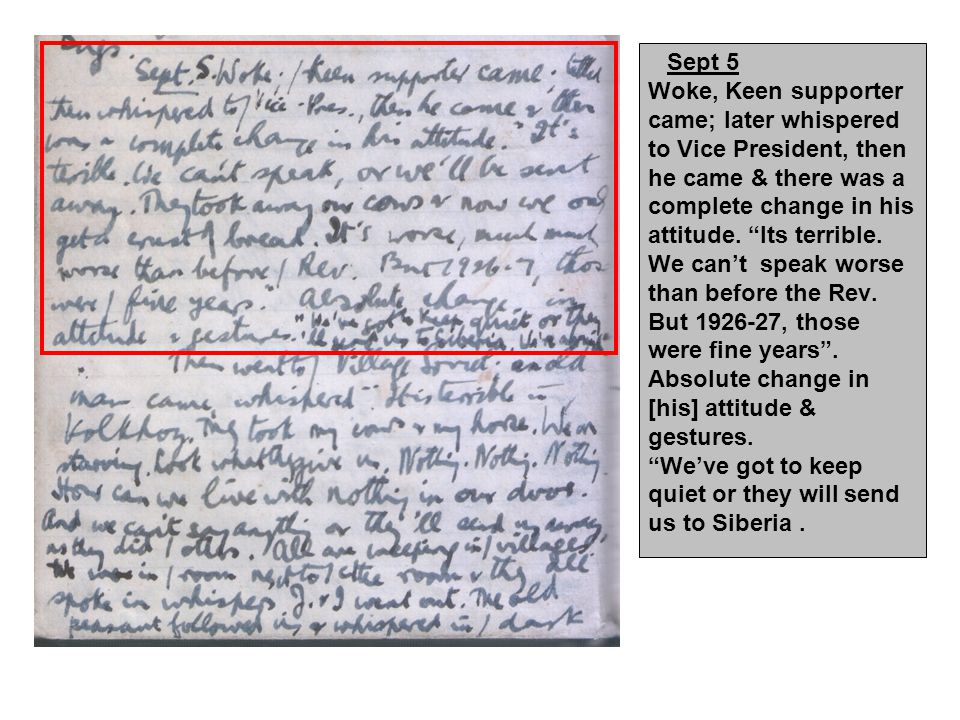 Bugs.
Sept. 5. Woke. / Keen supporter came;
then whispered to / Vice-Pres., then he came & there
was a complete change in his attitude. "It's
terrible. We can't speak, or we'll be sent
away. They took away our cows & now we only
get a crust of bread. It's worse, much much
worse than before / Rev. But 1926-7, those
were / fine years." Absolute change in
attitude & gestures. "We've got to keep quiet or they
'll send us to Siberia.
Then went to / Village Soviet. an old
man came, whispered "It is terrible in
Kolkhoz. They took my cows & my horse. We are
starving. Look what they give us. Nothing. Nothing. Nothing.
How can we live with nothing in our dvor.
And we can't say anything or they'll send us away
as they did / others." All are weeping in / villages.
We were in / room next to / the room & they all
spoke in whispers. J. & I went out. The old
peasant followed us & whispered in / dark
Sept 5
Woke, Keen supporter
came; later whispered
to Vice President, then
he came & there was a
complete change in his
attitude. “Its terrible.
We can’t speak worse
than before the Rev.
But 1926-27, those
were fine years”.
Absolute change in
[his] attitude &
gestures.
“We’ve got to keep
quiet or they will send
us to Siberia .